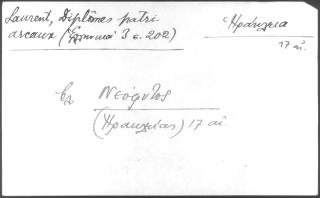 Laurent, Diplômes patri
arcaux (Ἑλληνικά 3 σ. 202)
Ἡράκλεια
17 αἰ.
Νεόφυτος
(Ἡρακλείας) 17 αἰ.